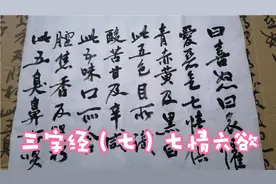 曰喜怒曰哀懼
愛惡欲七情
青赤黃及黑白
此五色目所
酸苦甘及辛
此五味口所
膻焦香及
此五臭鼻所嗅
三字经（七）七情六欲